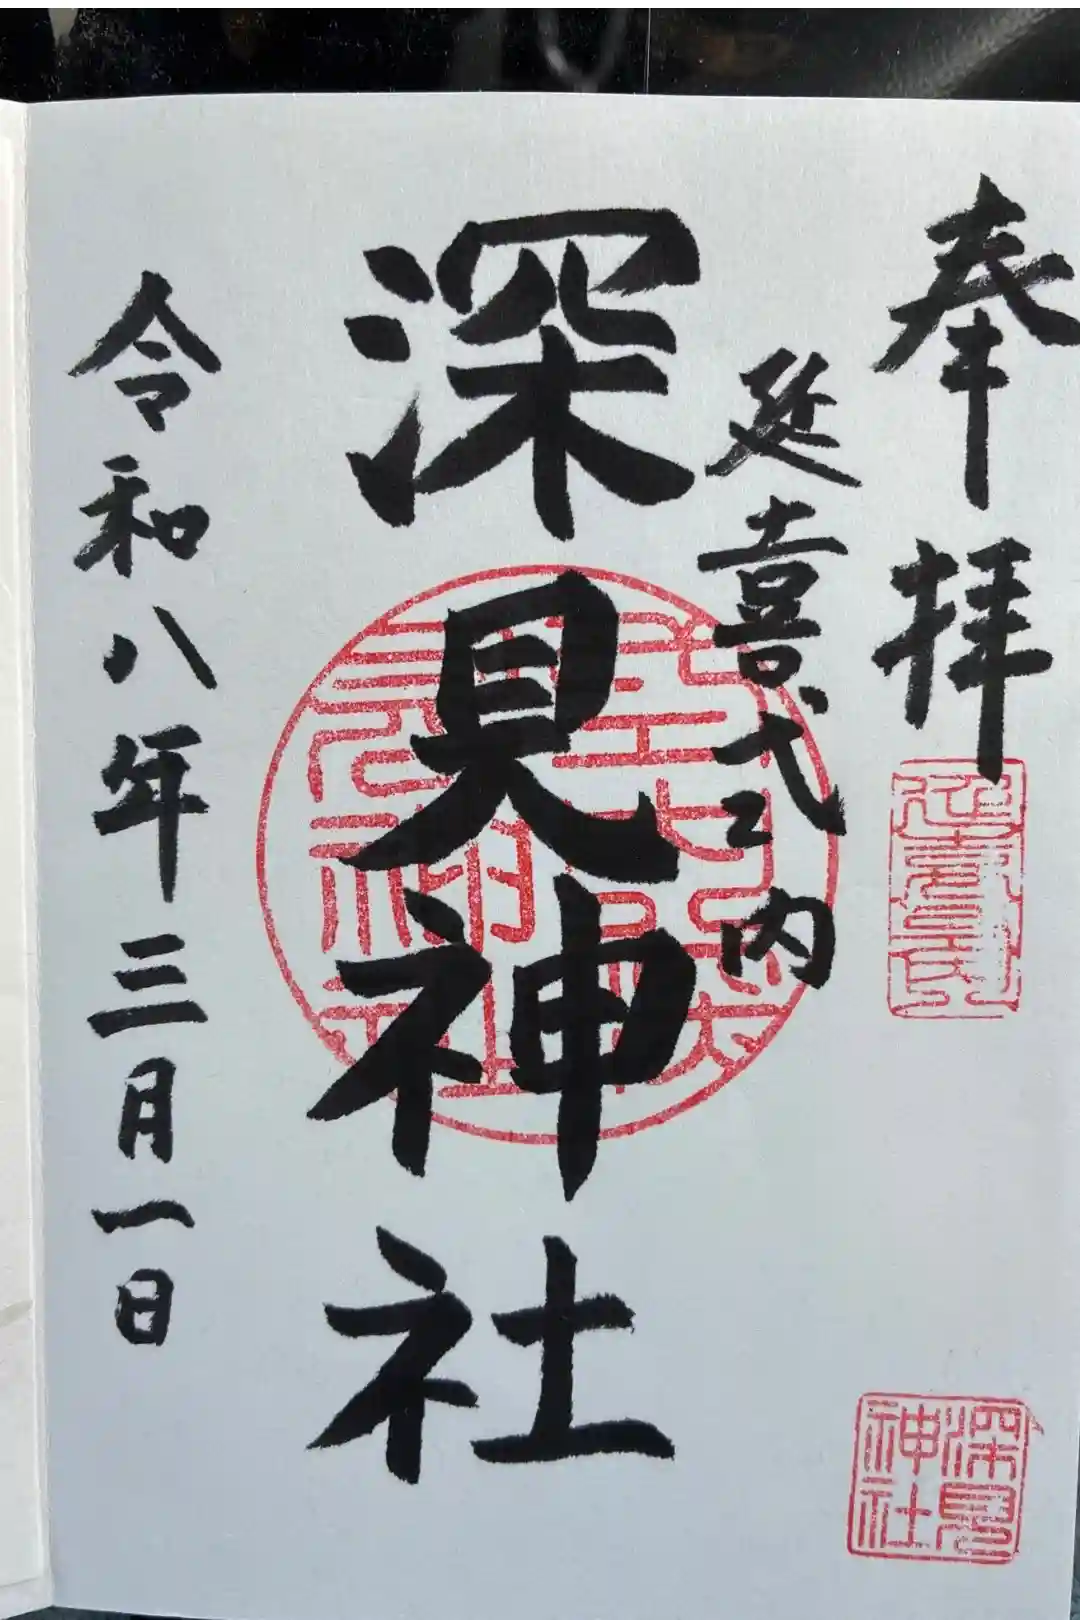 奉拝
延喜式内
深見神社
令和八年三月一日
延喜式内
深見神社